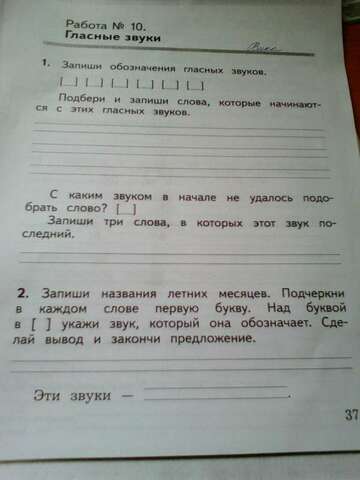 Работа № 10.
Гласные звуки
1. Запиши обозначения гласных звуков.
[ ] [ ] [ ] [ ] [ ] [ ]
Подбери и запиши слова, которые начинают-
ся с этих гласных звуков.
С каким звуком в начале не удалось подо-
брать слово? [ ]
Запиши три слова, в которых этот звук по-
следний.
2. Запиши названия летних месяцев. Подчеркни
в каждом слове первую букву. Над буквой
в [ ] укажи звук, который она обозначает. Сде-
лай вывод и закончи предложение.
Эти звуки —
37